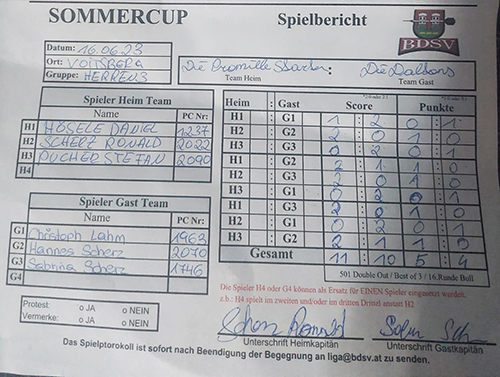 SOMMERCUP Spielbericht
BDSV
Datum: 16.06.23
Ort: VOITSBERG
Gruppe: HERREN 3
Die Promille Darter : Die Daltons
Team Heim Team Gast
Spieler Heim Team
Name PC Nr:
H1 HÖSELE DANIEL 1237
H2 SCHERZ RONALD 2022
H3 PUCHER STEFAN 2090
H4
Spieler Gast Team
Name PC Nr:
G1 Christoph Lahm 1963
G2 Hannes Scherz 2070
G3 Sabrina Scherz 1746
G4
Protest: o JA o NEIN
Vermerke: o JA o NEIN
Heim : Gast Score Punkte
H1 : G1 1 : 2 0 : 1
H2 : G2 2 : 0 1 : 0
H3 : G3 0 : 2 0 : 1
H1 : G2 2 : 1 1 : 0
H2 : G3 2 : 0 1 : 0
H3 : G1 0 : 2 0 : 1
H1 : G3 0 : 2 0 : 1
H2 : G1 2 : 0 1 : 0
H3 : G2 2 : 1 1 : 0
Gesamt 11 : 10 5 : 4
501 Double Out / Best of 3 / 16.Runde Bull
Die Spieler H4 oder G4 können als Ersatz für EINEN Spieler eingesetzt werden.
z.b.: H4 spielt im zweiten und/oder im dritten Drittel anstatt H2
Unterschrift Heimkapitän Unterschrift Gastkapitän
Das Spielptorokoll ist sofort nach Beendigung der Begegnung an liga@bdsv.at zu senden.